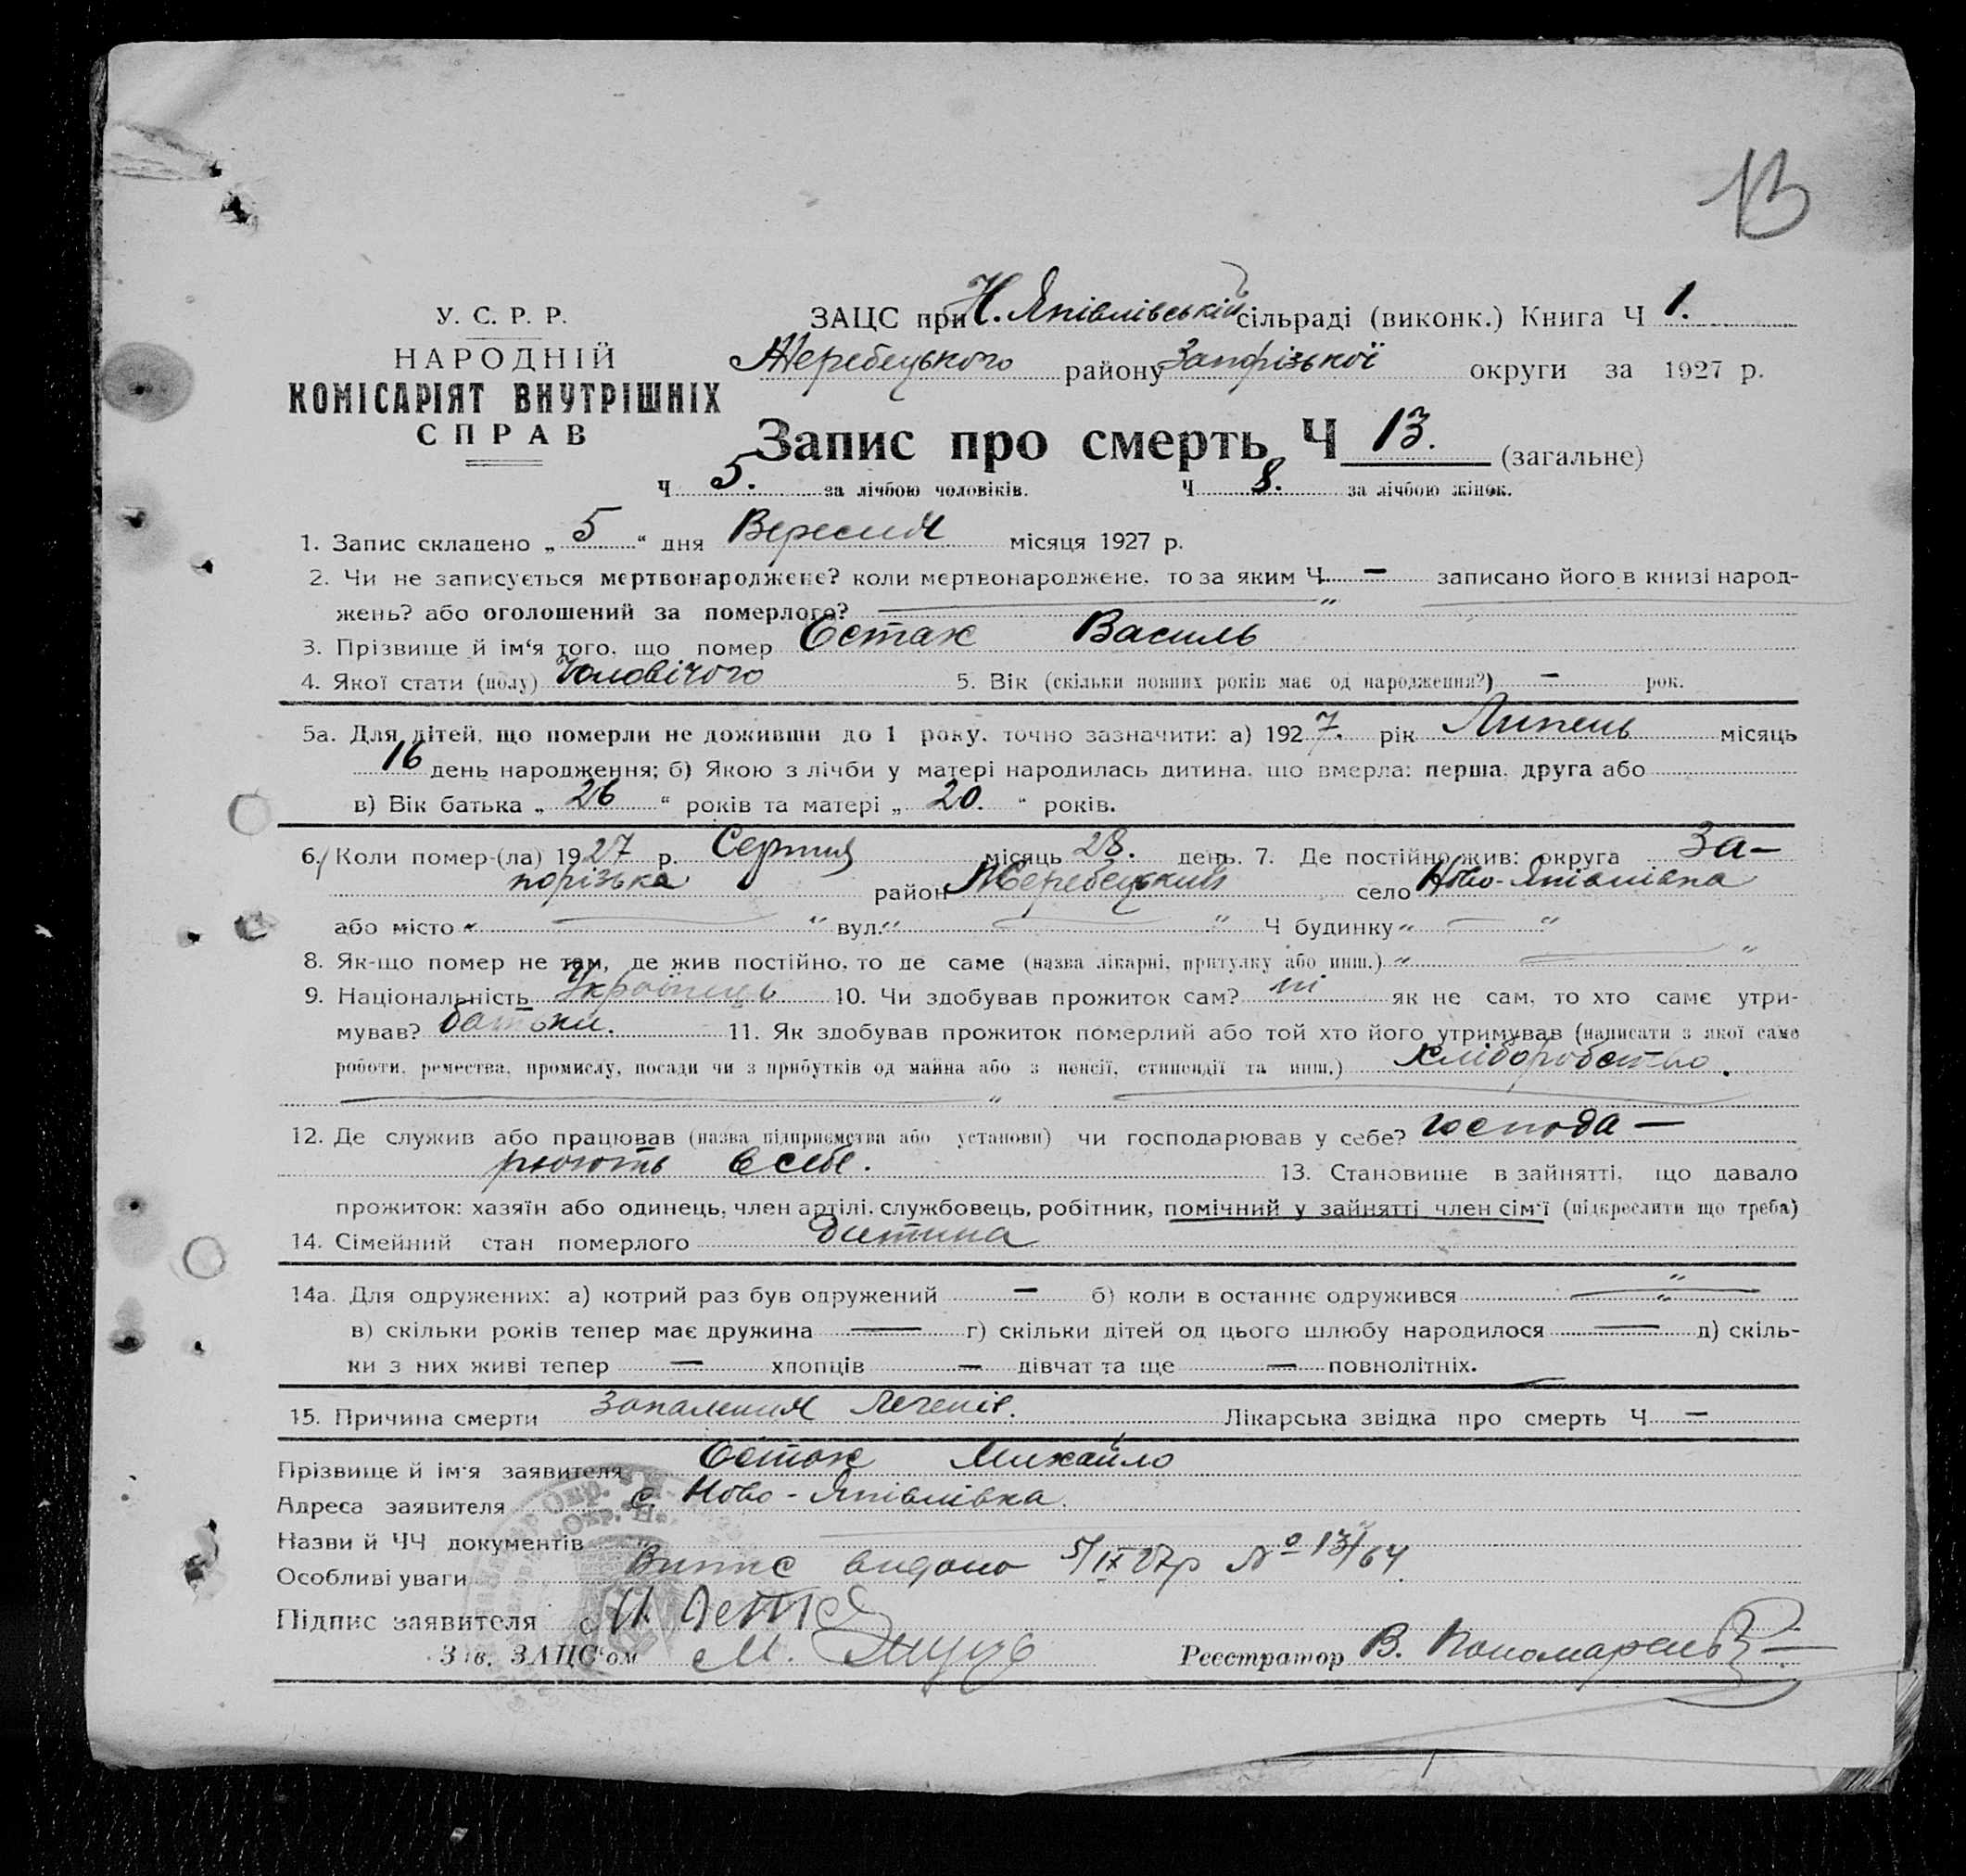 13
У. С. Р. Р.
НАРОДНІЙ
КОМІСАРІЯТ ВНУТРІШНІХ
СПРАВ
ЗАЦС при Н. Яківлівській сільраді (виконк.) Книга Ч 1.
Жеребецького району Запорізької округи за 1927 р.
Запис про смерть Ч 13. (загальне)
Ч 5. за лічбою чоловіків. Ч 8. за лічбою жінок.
1. Запис складено „ 5 “ дня Вересня місяця 1927 р.
2. Чи не записується мертвонароджене? коли мертвонароджене, то за яким Ч — записано його в книзі народ-
жень? або оголошений за померлого? — „ —
3. Прізвище й ім‘я того, що помер Остах Василь
4. Якої стати (полу) Чоловічого 5. Вік (скільки повних років має од народження?) — рок.
5а. Для дітей, що померли не доживши до 1 року, точно зазначити: а) 1927. рік Липень місяць
16 день народження; б) Якою з лічби у матері народилась дитина, що вмерла: перша, друга або
в) Вік батька „ 26 “ років та матері „ 20. “ років.
6. Коли помер-(ла) 1927 р. Серпня місяць 28. день. 7. Де постійно жив: округа За-
порізька район Жеребецький село Ново-Яківлівка
або місто „ — “ вул. „ — “ Ч будинку „ — “
8. Як-що помер не там, де жив постійно, то де саме (назва лікарні, притулку або инш.) „ — “
9. Національність Українець 10. Чи здобував прожиток сам? ні як не сам, то хто саме утри-
мував? батьки. 11. Як здобував прожиток померлий або той хто його утримував (написати з якої саме
роботи, ремества, промислу, посади чи з прибутків од майна або з пенсії, стипендії та инш.) хліборобство.
— „ —
12. Де служив або працював (назва підприємства або установи) чи господарював у себе? господа —
рюють в себе. 13. Становище в зайнятті, що давало
прожиток: хазяїн або одинець, член артілі, службовець, робітник, помічний у зайнятті член сім‘ї (підкреслити що треба)
14. Сімейний стан померлого дитина
14а. Для одружених: а) котрий раз був одружений — б) коли в останнє одружився — „ —
в) скільки років тепер має дружина — г) скільки дітей од цього шлюбу народилося — д) скіль-
ки з них живі тепер — хлопців — дівчат та ще — повнолітніх.
15. Причина смерти Запалення Легенів. Лікарська звідка про смерть Ч —
Прізвище й ім‘я заявителя Остах Михайло
Адреса заявителя с. Ново-Яківлівка.
Назви й ЧЧ документів
Особливі уваги Випис видано 5/IX 27р № 13/64.
Підпис заявителя
Зав. ЗАЦС‘ом М. Реєстратор В. Пономарень